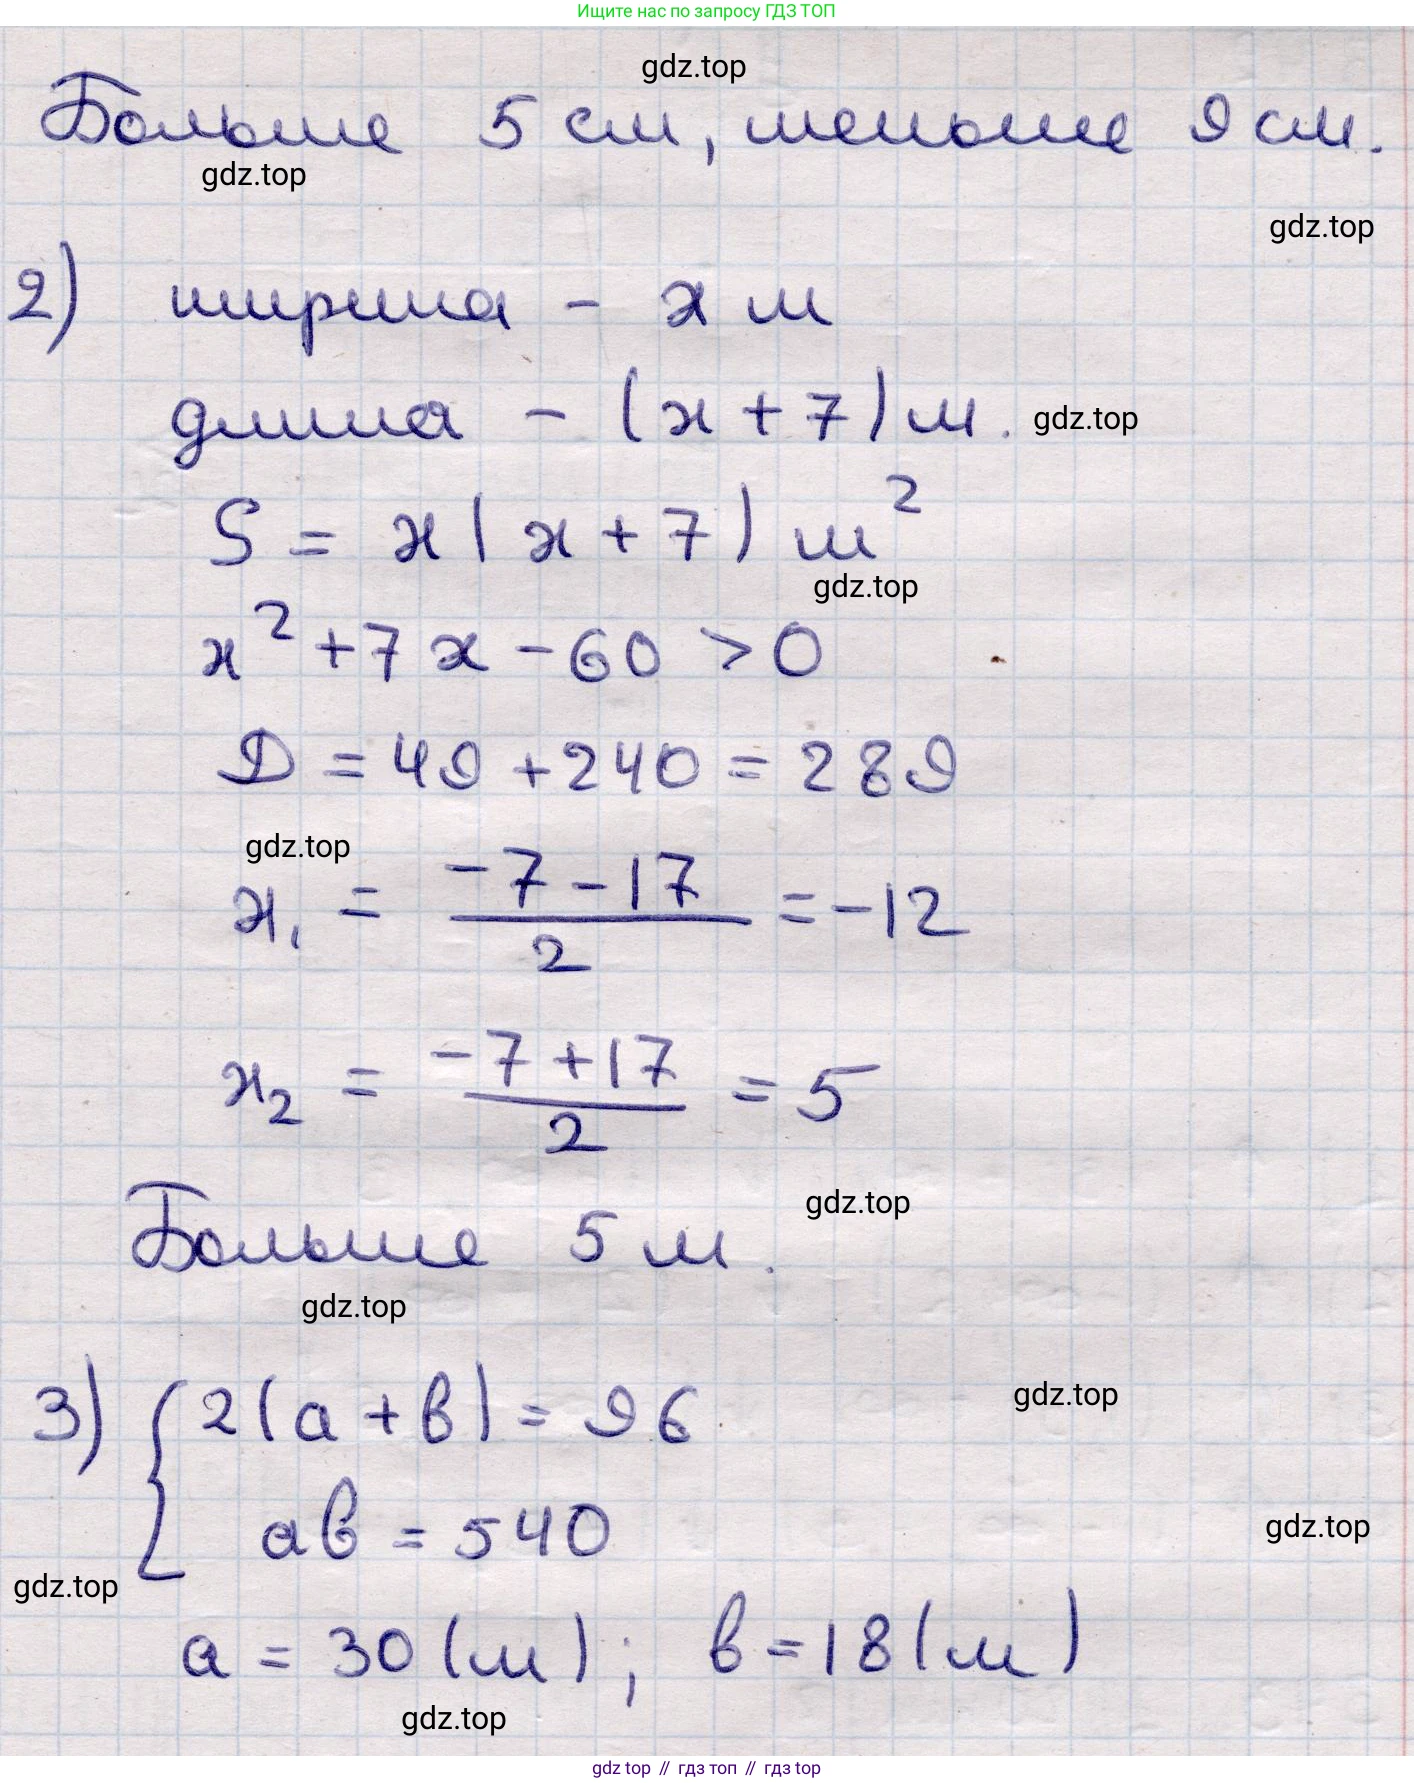 Ищите нас по запросу ГДЗ ТОП
gdz.top
Больше 5 см, меньше 9 см.
gdz.top
gdz.top
2) ширина - x м
длина - (x + 7) м.
gdz.top
S = x(x + 7) м²
gdz.top
x² + 7x - 60 > 0
D = 49 + 240 = 289
gdz.top
x₁ = (-7 - 17)/2 = -12
x₂ = (-7 + 17)/2 = 5
gdz.top
Больше 5 м.
gdz.top
3) { 2(a + b) = 96
gdz.top
ab = 540
gdz.top
gdz.top
a = 30 (м); b = 18 (м)
gdz.top
gdz top // гдз топ // гдз top